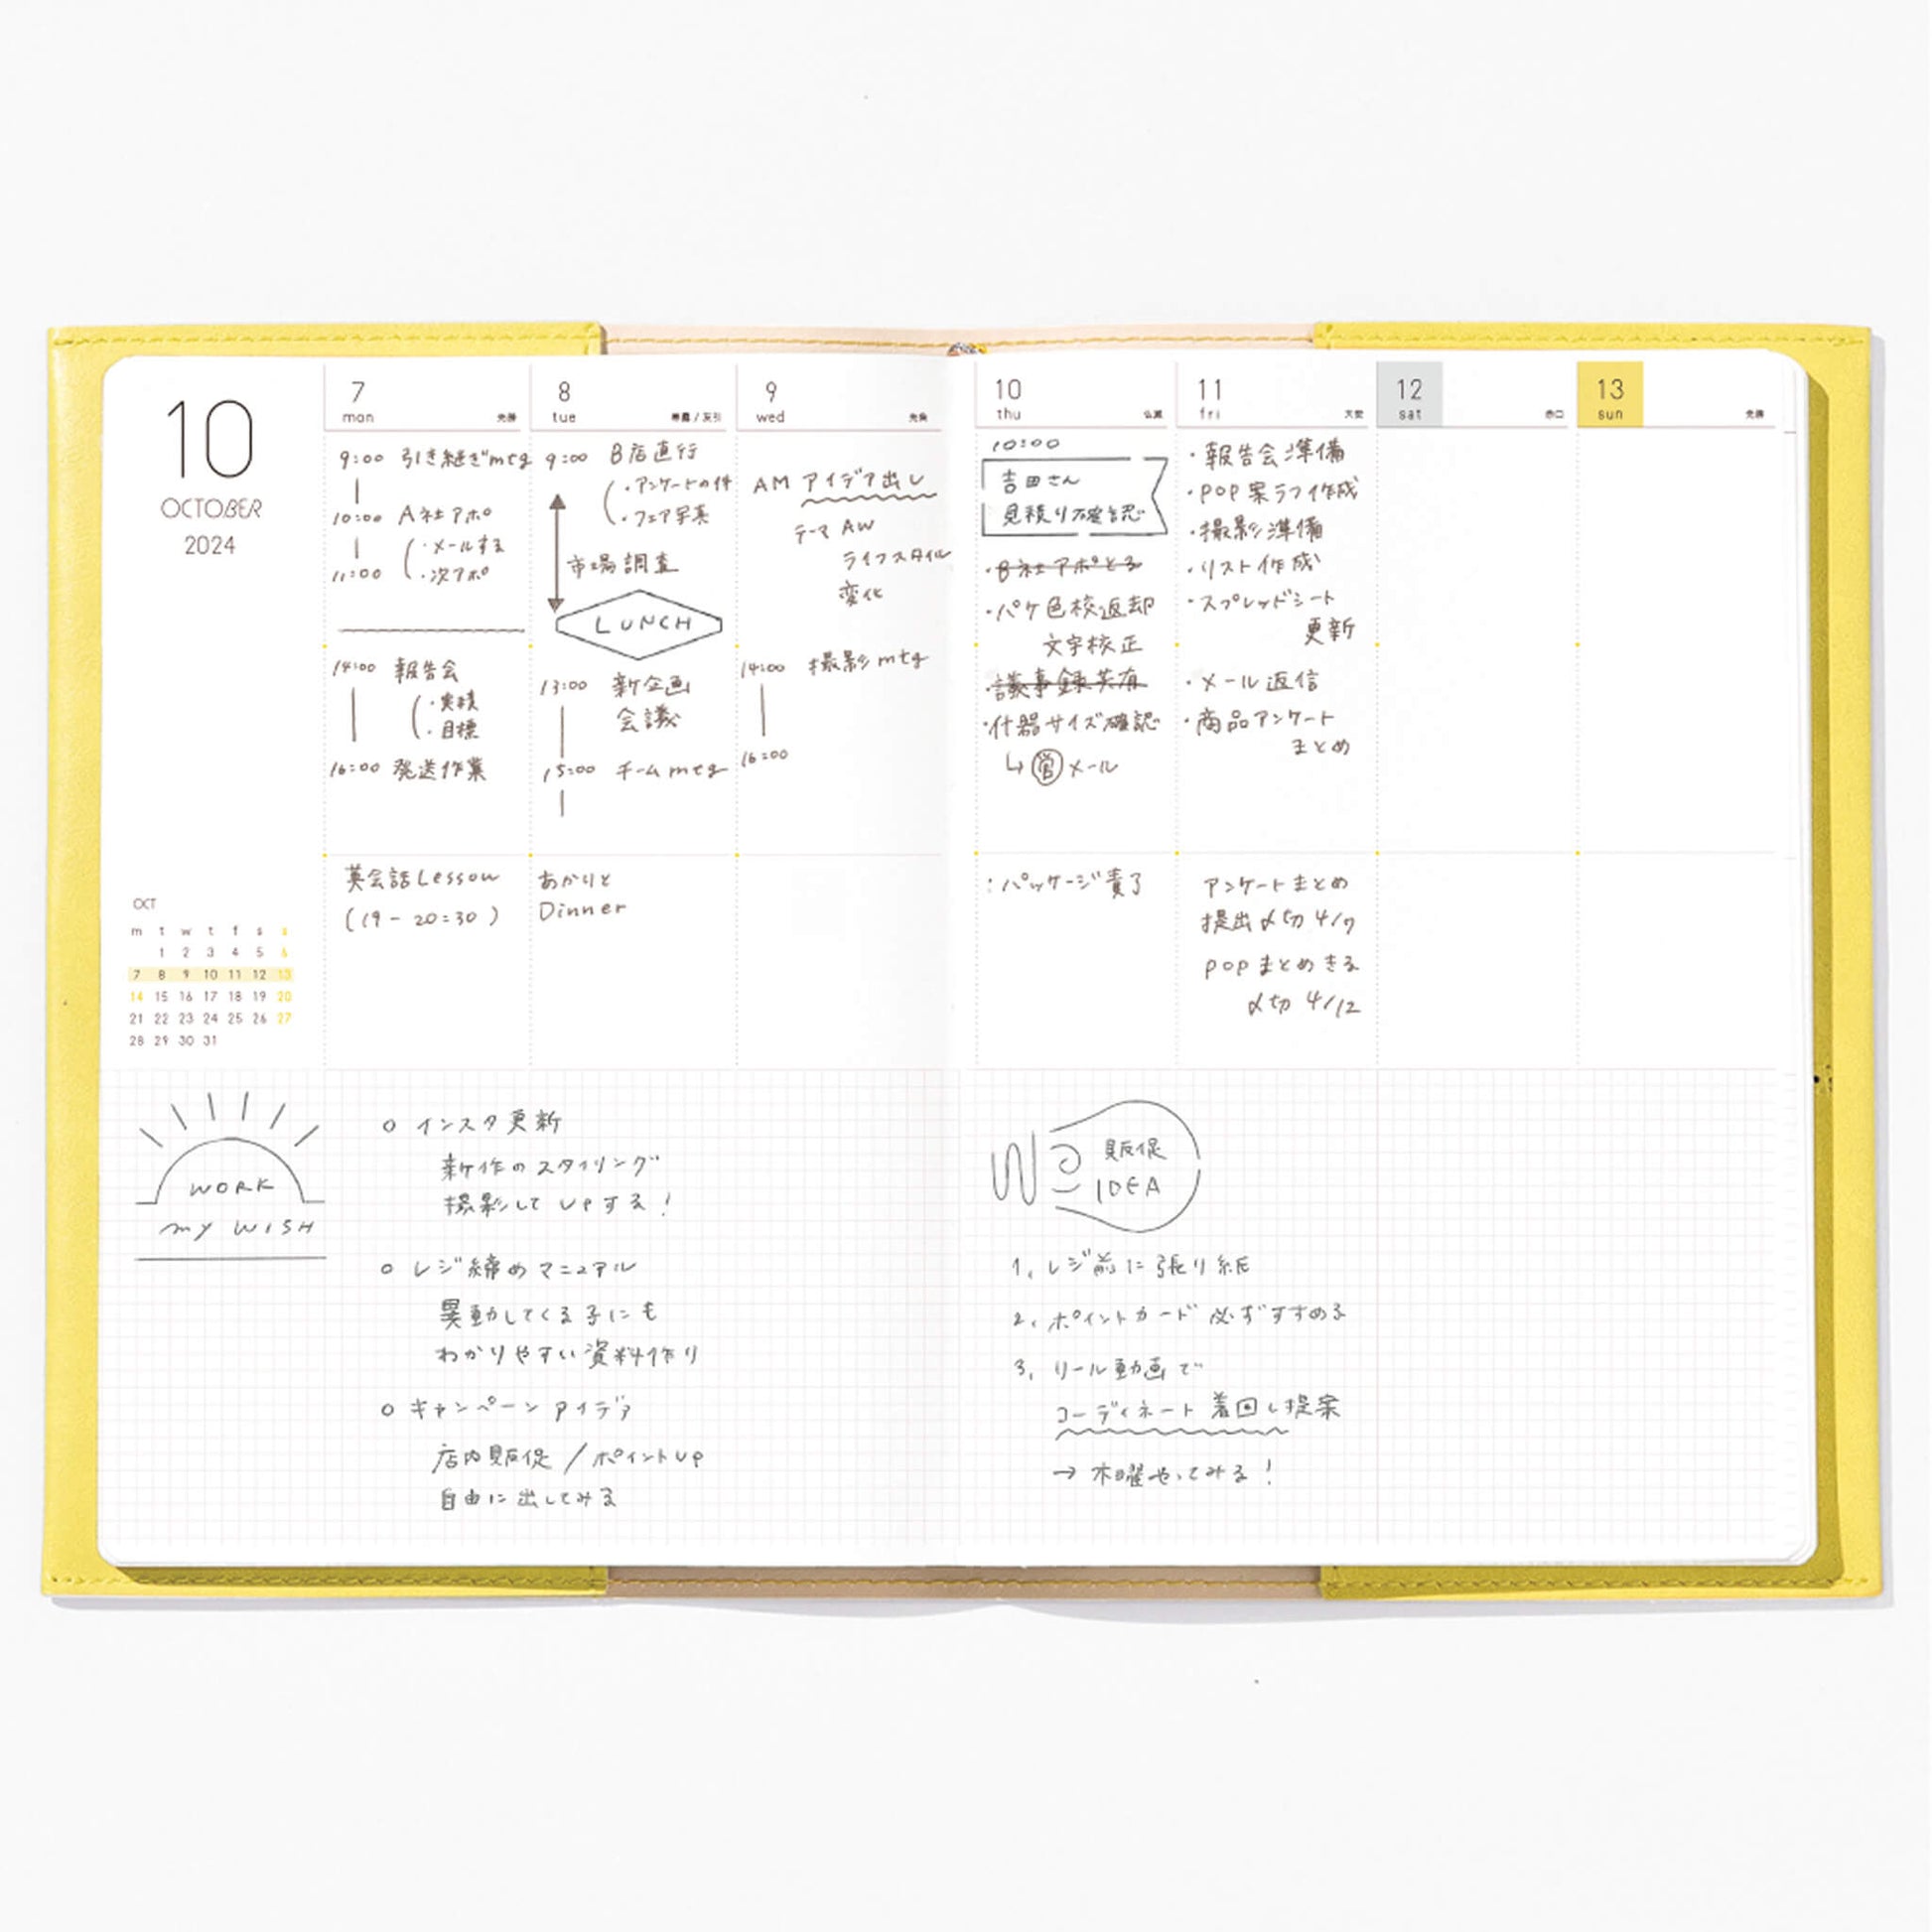 10
OCTOBER
2024
7
mon
先勝
9:00 引き継ぎmtg
10:00 A社アポ
・メールする
11:00 ・次アポ
14:00 報告会
・実績
・目標
16:00 発送作業
英会話Lesson
(19-20:30)
8
tue
寒露/友引
9:00 B店直行
・アンケートの件
・フェア写真
市場調査
LUNCH
13:00 新企画
会議
15:00 チームmtg
あかりと
Dinner
9
wed
先負
AM アイデア出し
テーマ AW
ライフスタイル
変化
14:00 撮影mtg
16:00
10
thu
仏滅
10:00
吉田さん
見積り確認
・B社アポとる
・パケ色校返却
文字校正
・議事録共有
・什器サイズ確認
↳営メール
・パッケージ責了
11
fri
大安
・報告会準備
・POP案ラフ作成
・撮影準備
・リスト作成
・スプレッドシート
更新
・メール返信
・商品アンケート
まとめ
アンケートまとめ
提出〆切 4/7
POPまとめきる
〆切 4/12
12
sat
赤口
13
sun
先勝
OCT
m t w t f s s
1 2 3 4 5 6
7 8 9 10 11 12 13
14 15 16 17 18 19 20
21 22 23 24 25 26 27
28 29 30 31
WORK
MY WISH
○ インスタ更新
新作のスタイリング
撮影してUPする!
○ レジ締めマニュアル
異動してくる子にも
わかりやすい資料作り
○ キャンペーンアイデア
店内販促/ポイントUP
自由に出してみる
販促
IDEA
1, レジ前に張り紙
2, ポイントカード必ずすすめる
3, リール動画で
コーディネート着回し提案
→ 木曜やってみる!